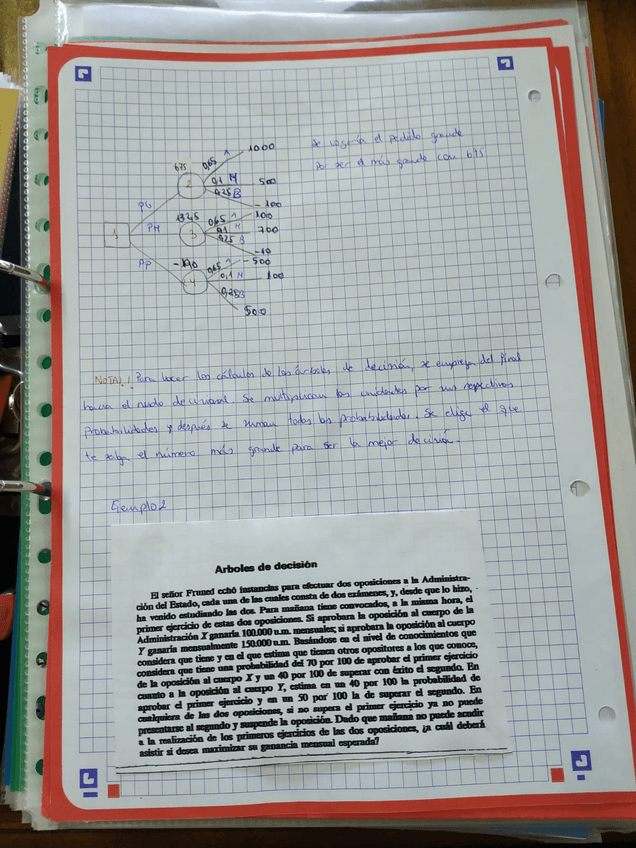 Se cogería el pedido grande
por ser el más grande con 675
675
0,65 A 1000
0,1 M 500
0,25 B -100
PG
2
1
PM
132,5
3
0,65 A 100
0,1 M 700
0,25 B -10
PP
-190
4
0,65 A -500
0,1 M 100
0,25 B 500
NOTA!! Para hacer los cálculos de los árboles de decisión, se empieza del final
hacia el nudo decisional. Se multiplican las unidades por sus respectivas
Probabilidades y después se suman todas las probabilidades. Se elige el que
te salga el número más grande para ser la mejor decisión.
Ejemplo 2
Arboles de decisión
El señor Fruned echó instancias para efectuar dos oposiciones a la Administra-
ción del Estado, cada una de las cuales consta de dos exámenes, y, desde que lo hizo,
ha venido estudiando las dos. Para mañana tiene convocados, a la misma hora, el
primer ejercicio de estas dos oposiciones. Si aprobara la oposición al cuerpo de la
Administración X ganaría 100.000 u.m. mensuales; si aprobara la oposición al cuerpo
Y ganaría mensualmente 150.000 u.m. Basándose en el nivel de conocimientos que
considera que tiene y en el que estima que tienen otros opositores a los que conoce,
considera que tiene una probabilidad del 70 por 100 de aprobar el primer ejercicio
de la oposición al cuerpo X y un 40 por 100 de superar con éxito el segundo. En
cuanto a la oposición al cuerpo Y, estima en un 40 por 100 la probabilidad de
aprobar el primer ejercicio y en un 50 por 100 la de superar el segundo. En
cualquiera de las dos oposiciones, si no supera el primer ejercicio ya no puede
presentarse al segundo y suspende la oposición. Dado que mañana no puede acudir
a la realización de los primeros ejercicios de las dos oposiciones, ¿a cuál deberá
asistir si desea maximizar su ganancia mensual esperada?